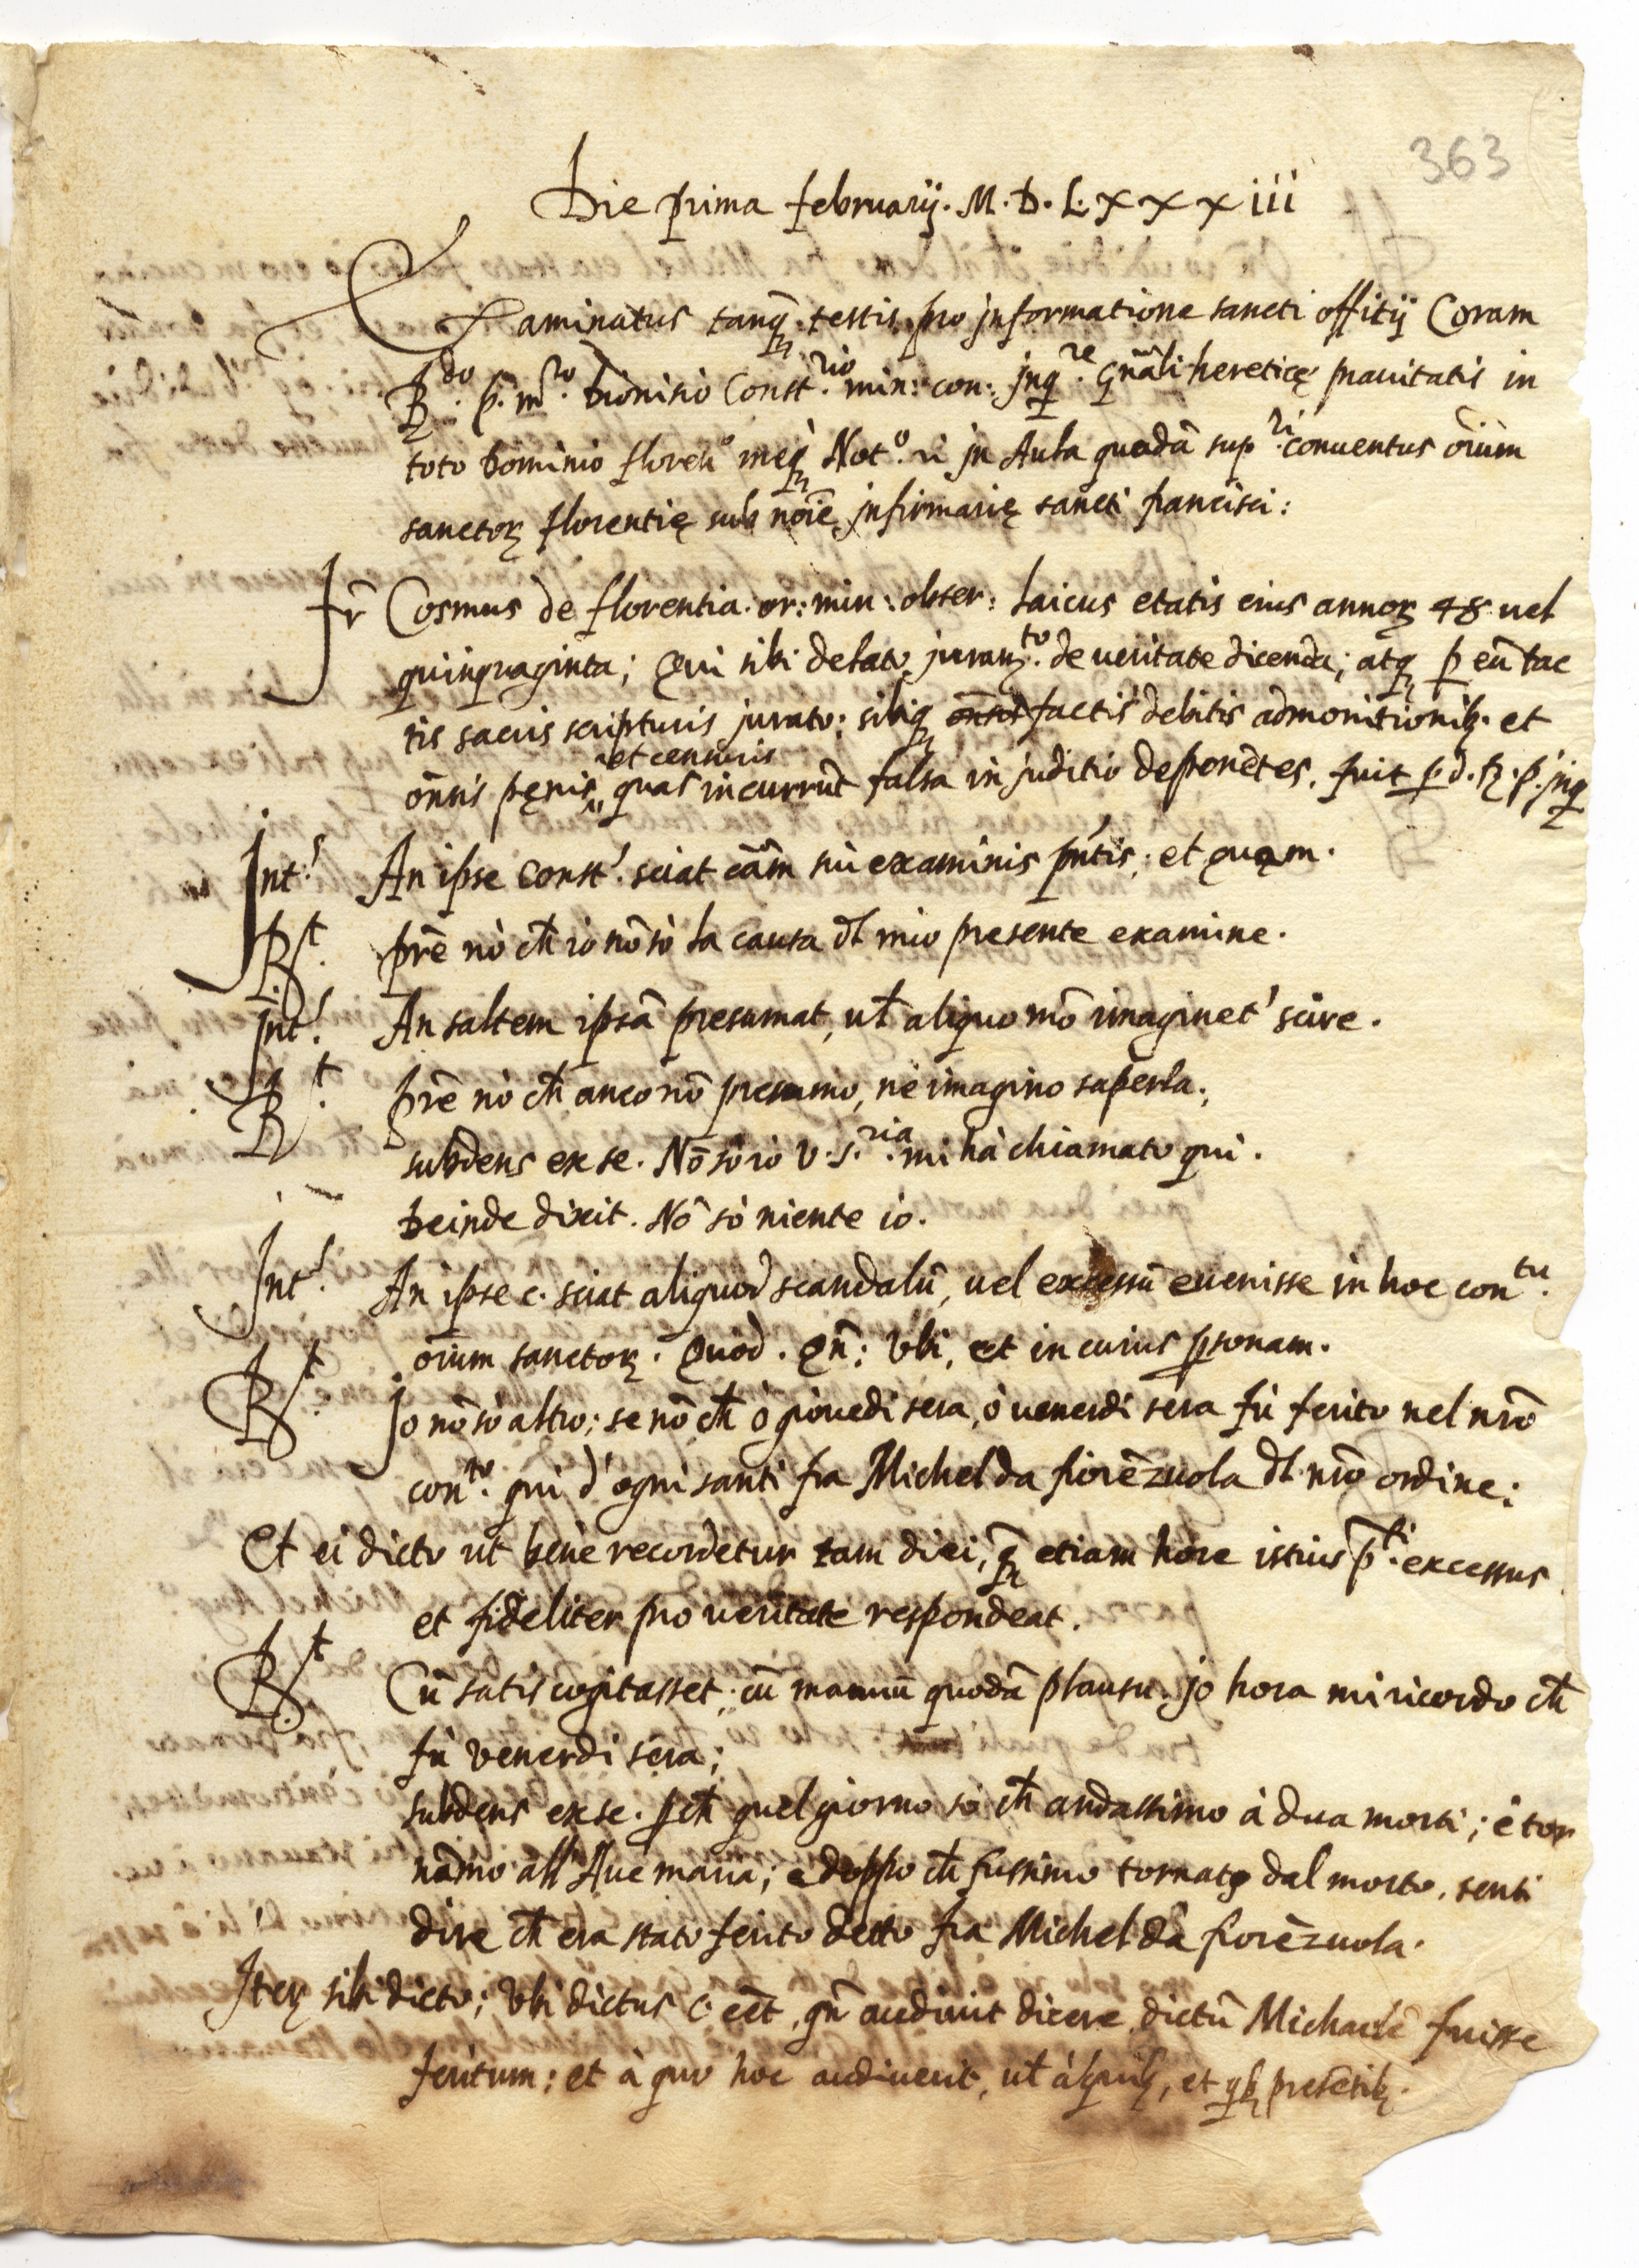 363
Die prima februarij. M. D. L. x x x iii
Examinatus tanq̃ testis pro jnformatione sancti offitij Coram
R.do p. m.ro Dionisio Const.rio min: con: jnq.re gn̄ali hereticę prauitatis in
toto Dominio floren.o meq̨ Not.o ii jn Aula quadā sup.ri conuentus oīum
sanctoꝝ florentię sub noīe jnfirmarię sancti francisci:
Fr̄ Cosmus de florentia. or: min: obser: laicus etatis eius annoꝝ 48 uel
quinquaginta; Qui sibi delato juram.to de ueritate dicenda; atq̨ ꝑ eū tac
tis sacris scripturis jurato: sibiq̨ factis debitis admonitionibꝫ. et
om̄sis pęnis, et censuris quas incurrūt falsa in juditio deponētes, fuit ꝑ. d. R. p. jnq̨
Int.s An ipse Const.s sciat cām sui examinis pn̄tis; et quam.
R.t prē nò ch̄ io nō sò la causa dl̄ mio presente examine.
Int.s An saltem ipsā presumat, ul̄ aliquo mō imaginet.r scire.
R.t prē nò ch̄ anco nō presumo, nè imagino saperla.;
subdens ex se. Nō sò io V. S.ria mi hà chiamato qui.
Deinde dixit. Nō sò niente io.
Int.s An ipse c. sciat aliquod scandalū, uel excessū euenisse in hoc con.tu
oīum sanctoꝝ. Quod. Qn̄: Vbi, et in cuius ꝑsonam.
R.t Jo nō sò altro; se nō ch̄ ò giouedi sera, ò uenerdi sera fù ferito nel nrō
con.to qui d'ogni santi fra Michel da fiorēzuola dl̄ nrō ordine:
Et ei dicto ut bene recordetur tam diei, q̃ etiam hore istius p.ti excessus
et fideliter pro ueritate respondeat.
R.t Cū satis cogitasset; cū manuū quodā plausu. jo hora mi ricordo ch̄
fù venerdi sera;
subdens ex se. ꝑch̄ quel giorno sò ch̄ andassimo à dua morti; è tor
nāmo all'Aue maria; e doppo ch̄ fussimo tornate dal morto, senti
dire ch̄ era stato ferito detto fra Michel da fiorēzuola.
Iteꝝ sibi dicto; Vbi dictus C. eēt, qn̄ audiuit dicere dictū Michaelē fuisse
feritum: et à quo hoc audiuerit, ul̄ à quibꝫ, et qbꝫ presētibꝫ.